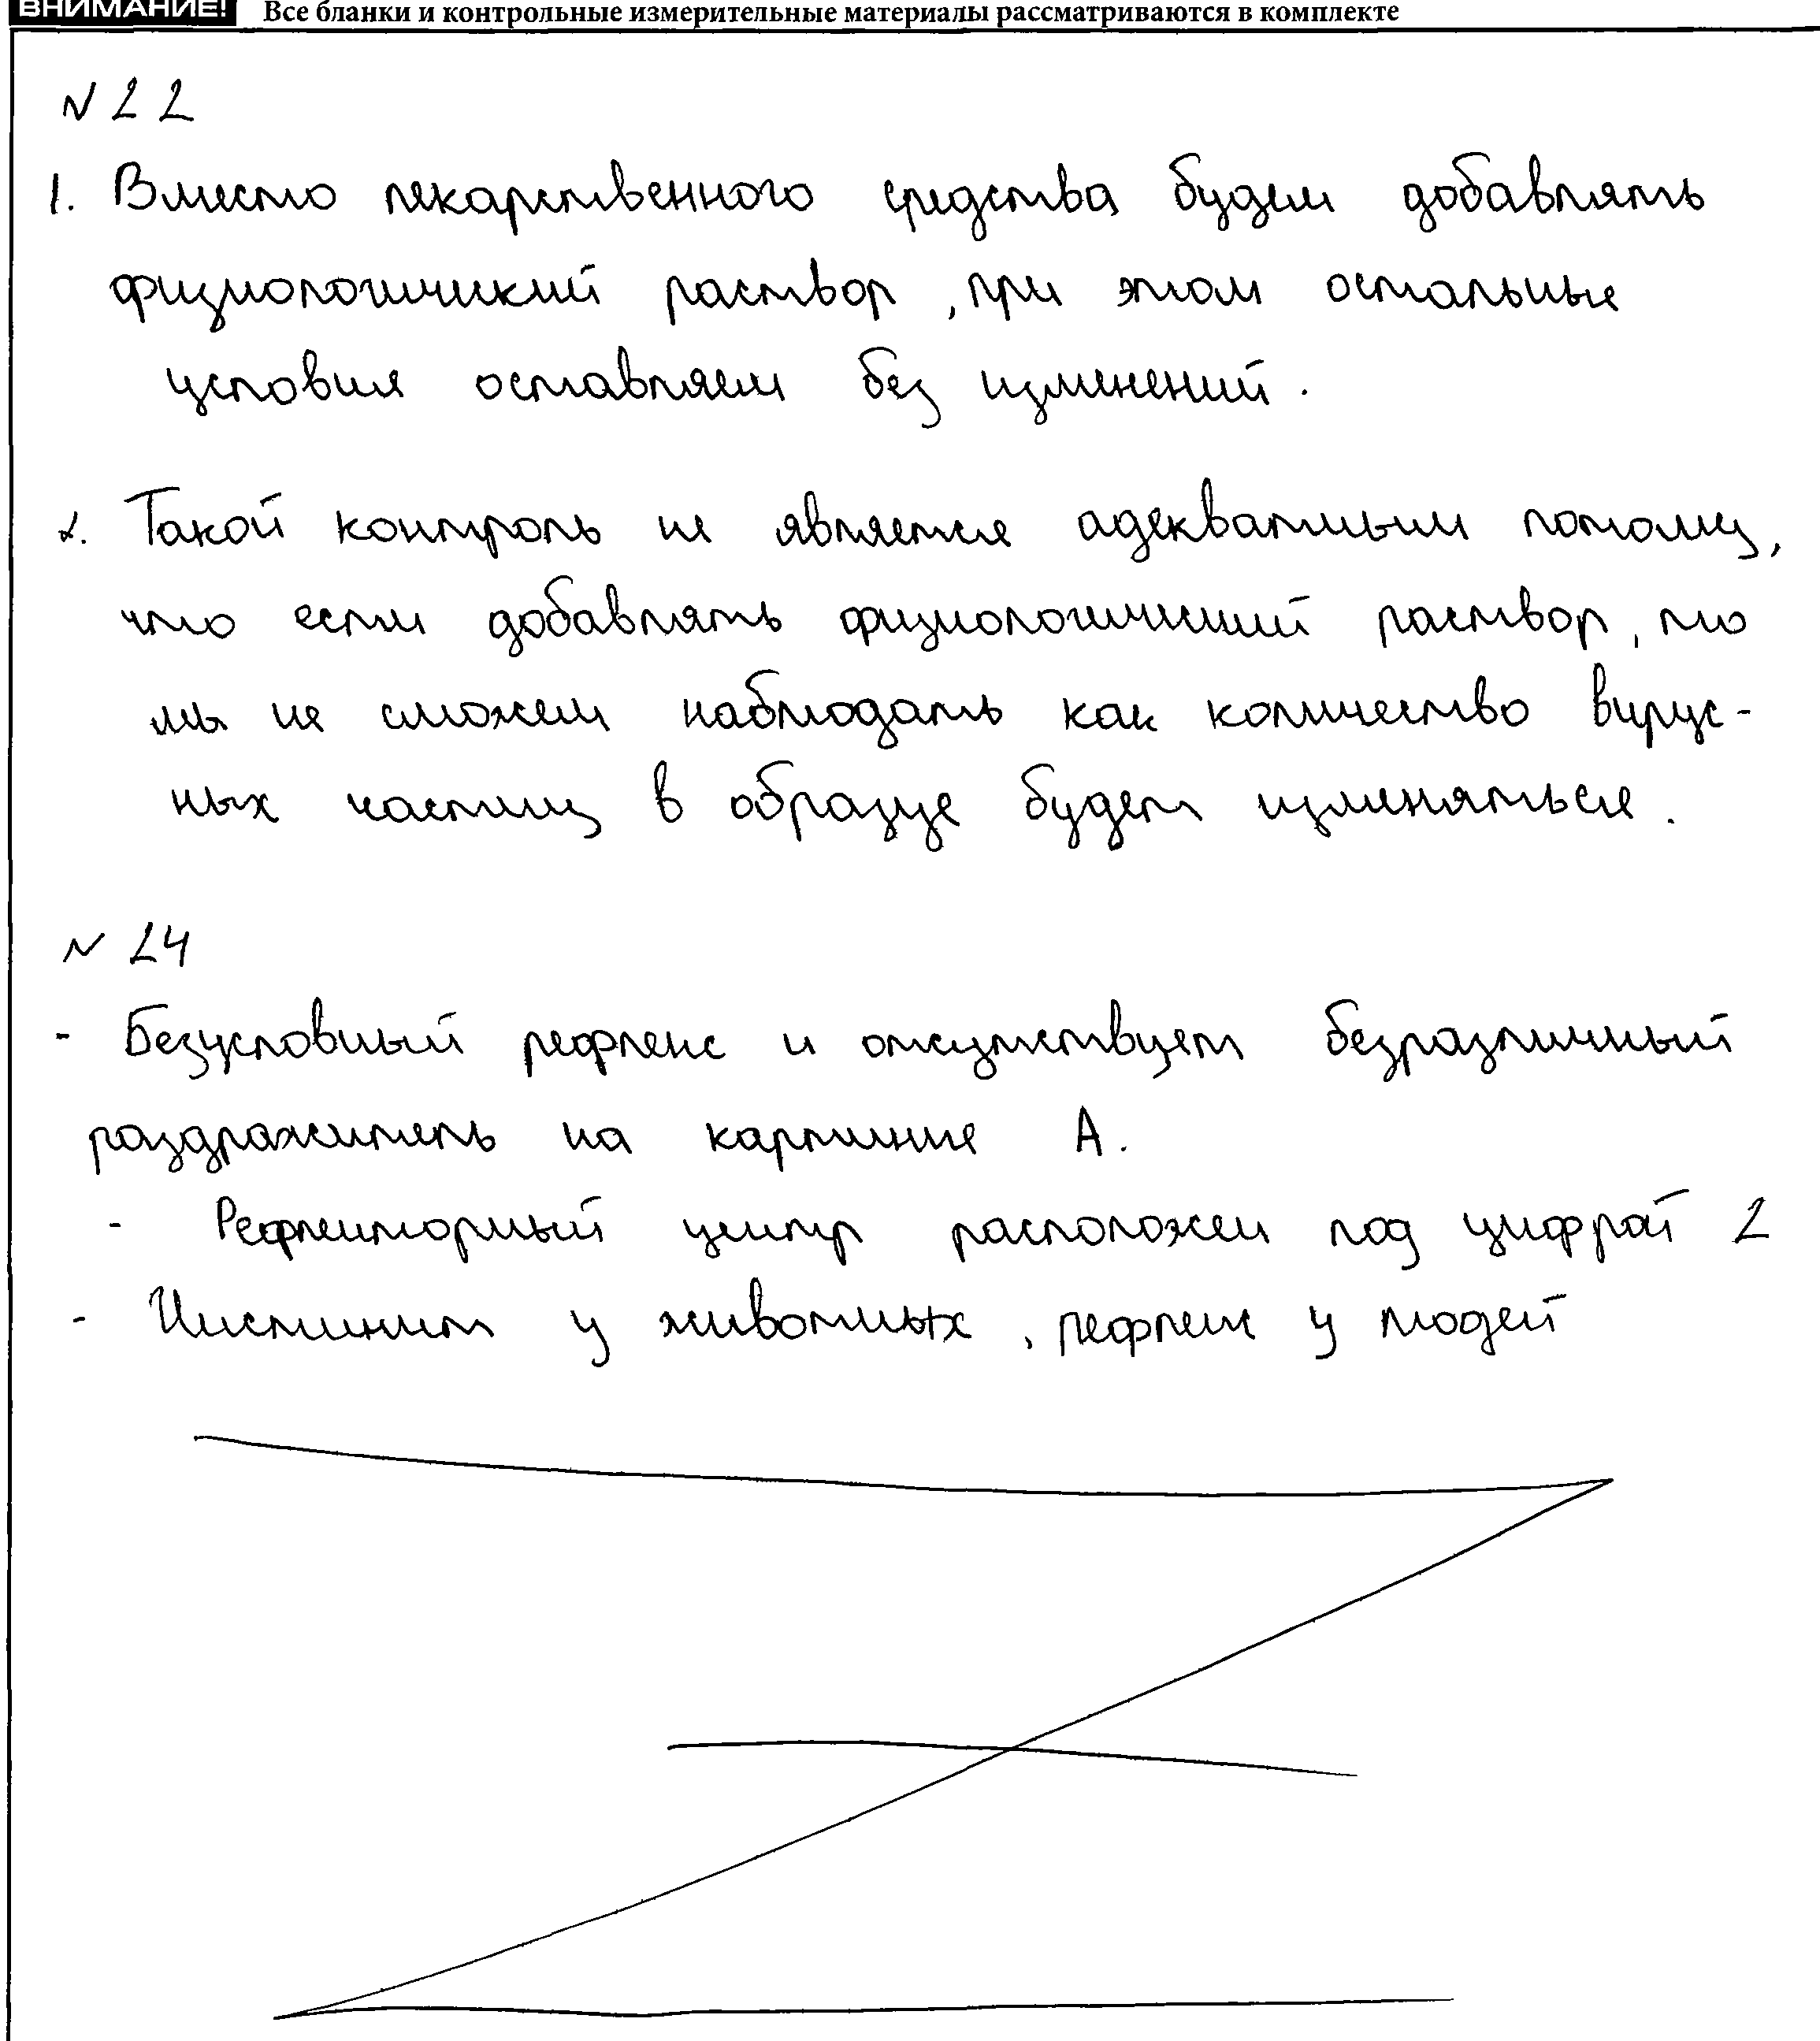 ВНИМАНИЕ! Все бланки и контрольные измерительные материалы рассматриваются в комплекте
№ 22
1. Вместо лекарственного средства будем добавлять
физиологический раствор, при этом остальные
условия оставляем без изменений.
2. Такой контроль не является адекватным потому,
что если добавлять физиологический раствор, то
мы не сможем наблюдать как количество вирус-
ных частиц в образце будет изменяться.
№ 24
- Безусловный рефлекс и отсутствует безразличный
раздражитель на картинке А.
- Рефлекторный центр расположен под цифрой 2
- Инстинкт у животных, рефлекс у людей